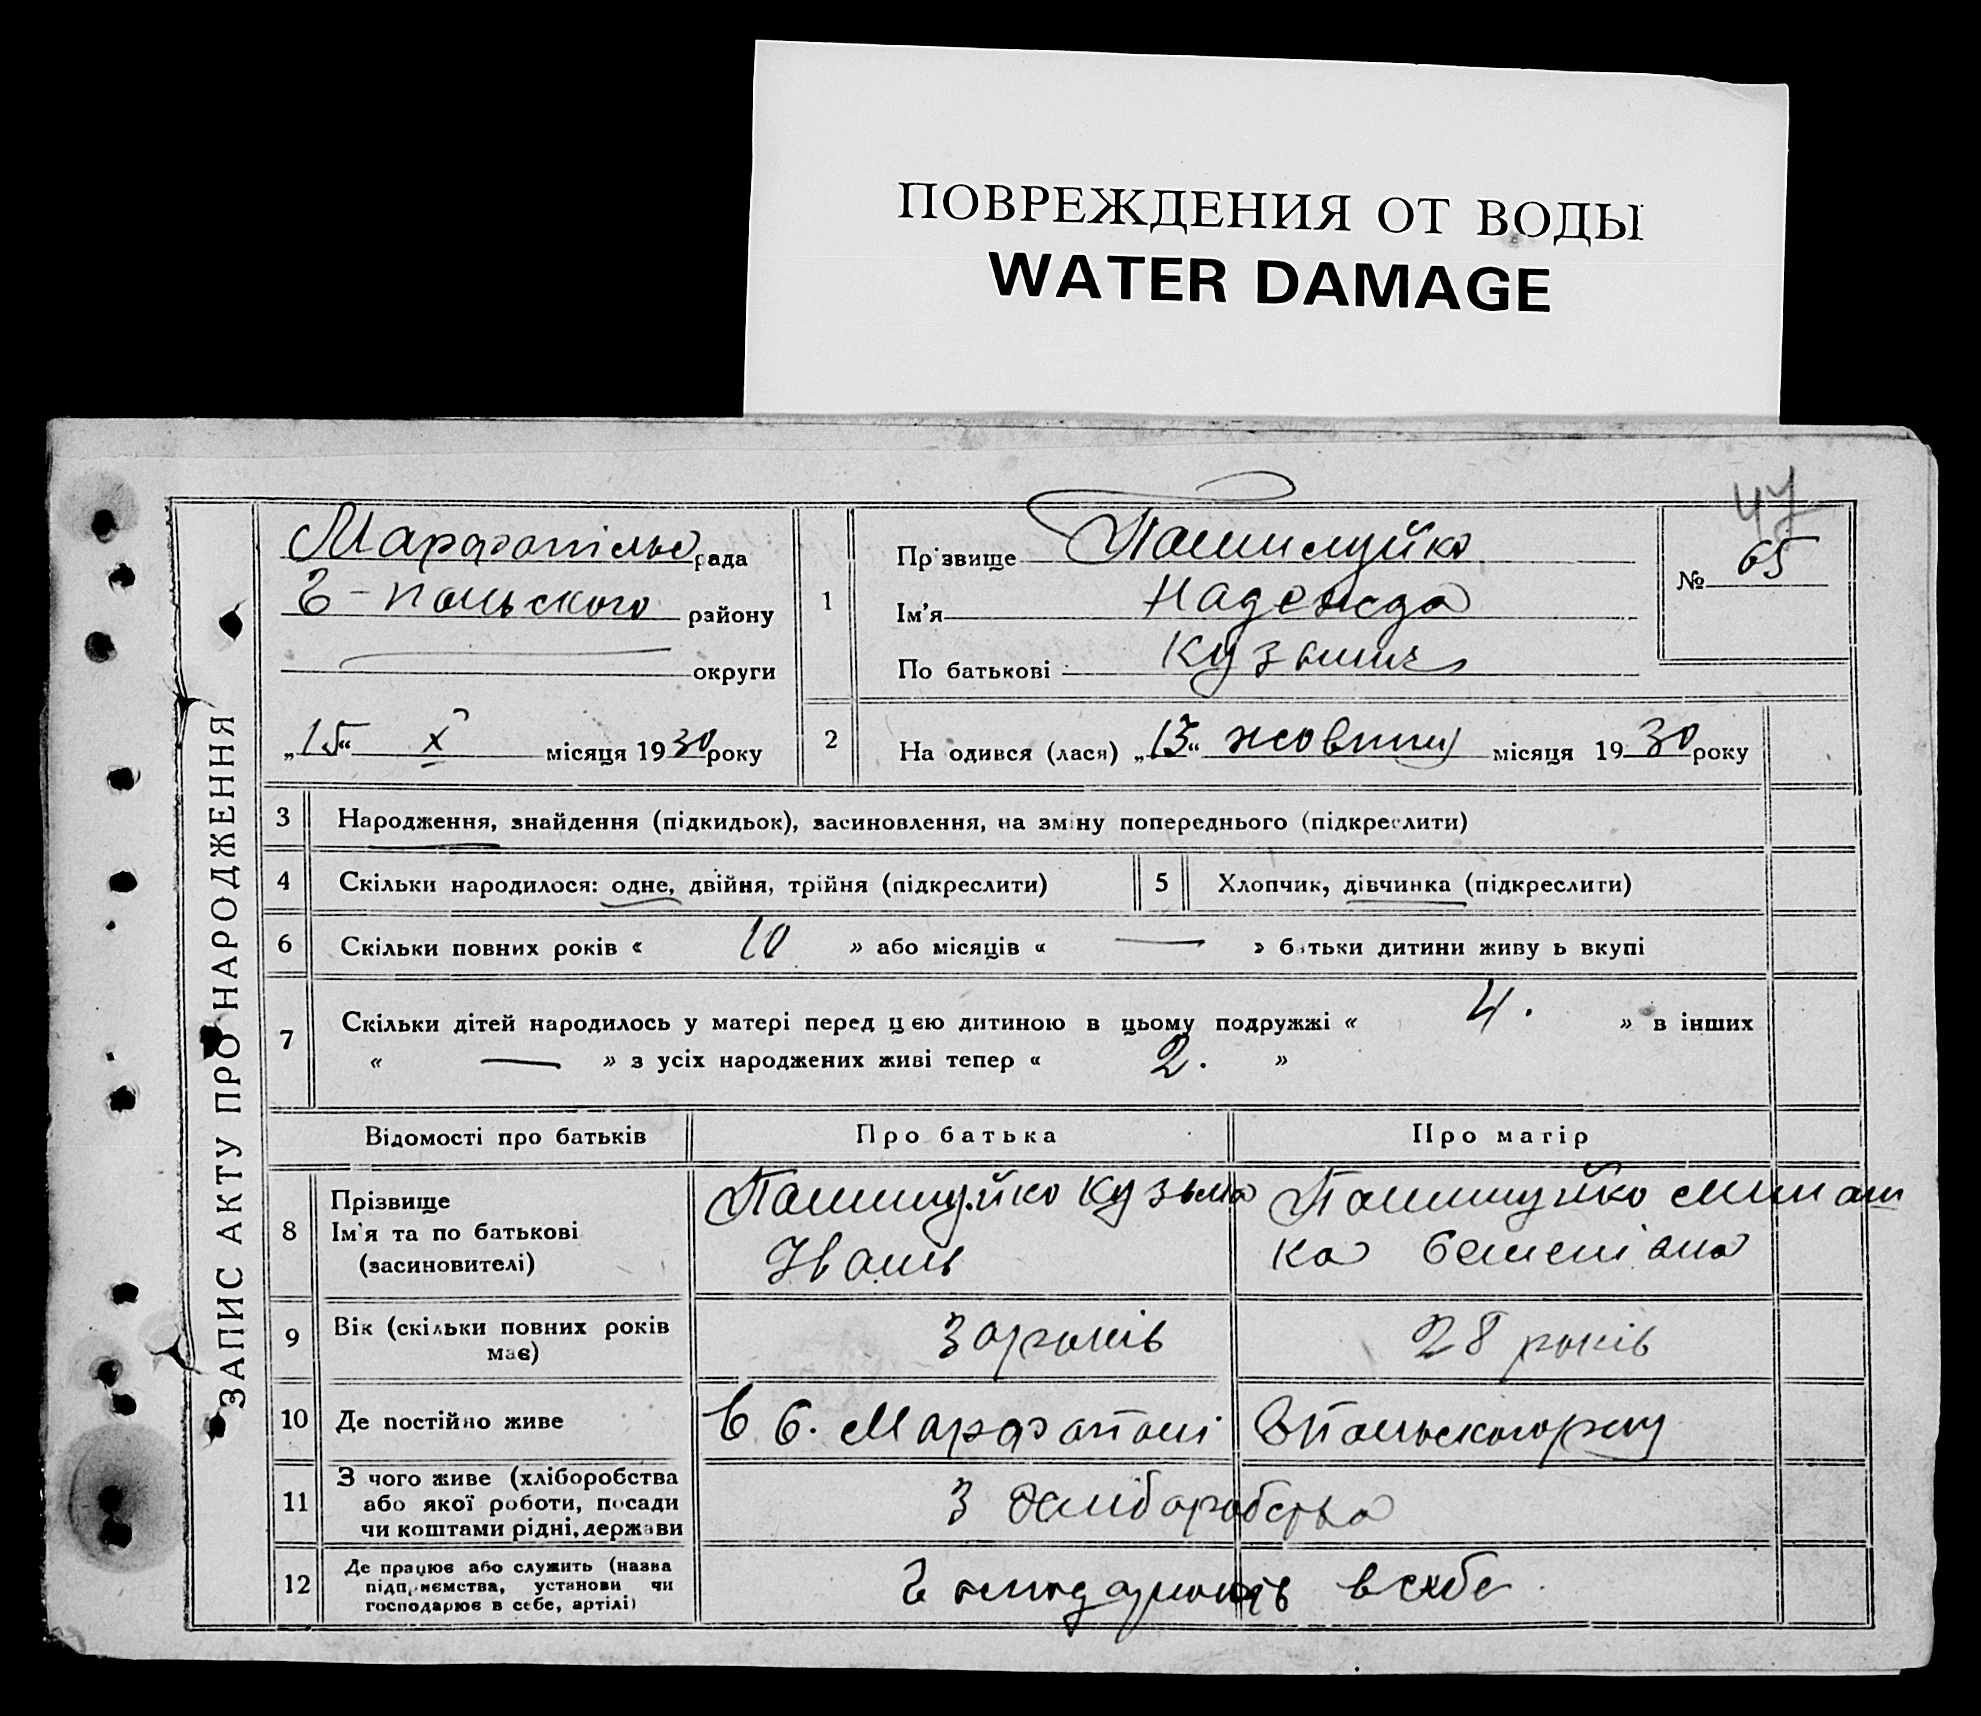 ПОВРЕЖДЕНИЯ ОТ ВОДЫ
WATER DAMAGE
47
ЗАПИС АКТУ ПРО НАРОДЖЕННЯ
рада
Г-польского району
округи
„15“ X місяця 1930 року
1
Прізвище
Ім’я Надежда
По батькові
№ 65
2 На одився (лася) „13“ жовтня місяця 1930 року
3 Народження, знайдення (підкидьок), засиновлення, на зміну попереднього (підкреслити)
4 Скільки народилося: одне, двійня, трійня (підкреслити)
5 Хлопчик, дівчинка (підкреслити)
6 Скільки повних років « 10 » або місяців « — » батьки дитини живу ь вкупі
7 Скільки дітей народилось у матері перед цією дитиною в цьому подружжі « 4. » в інших
« — » з усіх народжених живі тепер « 2. »
Відомості про батьків Про батька Про матір
8 Прізвище
Ім’я та по батькові
(засиновителі)
Кузьма
9 Вік (скільки повних років
має)
30 років 28 років
10 Де постійно живе
в с. Марфополі
11 З чого живе (хліборобства
або якої роботи, посади
чи коштами рідні, держави
З хліборобства
12 Де працює або служить (назва
підприємства, установи чи
господарює в себе, артілі)
в себе